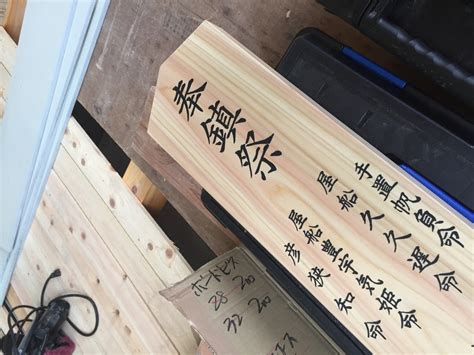 奉鎮祭
手置帆負命
屋船久久遅命
屋船豊宇気姫命
彦狭知命
ボードビス
28 200
32 200